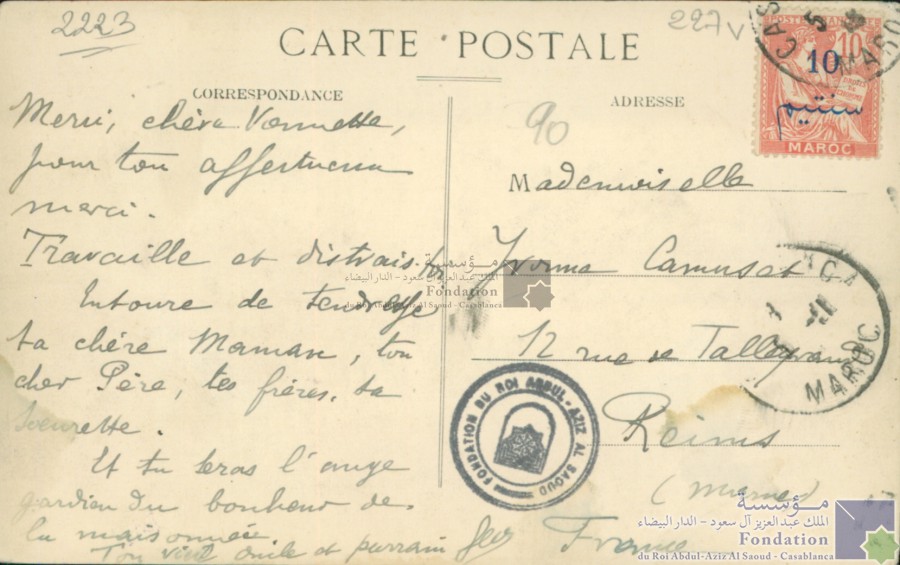 2223
227v
CARTE POSTALE
CORRESPONDANCE
ADRESSE
90
POSTES FRANCAISES
10
10
سنتيم
MAROC
CAS
5
MAROC
Merci, chère Vonnette,
pour ton affectueux
merci.
Travaille et distrais toi
Entoure de tendresse
ta chère Maman, ton
cher Père, tes frères, ta
soeurette.
Et tu seras l'ange
gardien du bonheur de
la maisonnée
Ton vieil oncle et parrain Geo
Mademoiselle
Yvonne Camuset
12 rue de Talleyrand
Reims
(Marne)
France
MAROC
FONDATION DU ROI ABDUL-AZIZ AL SAOUD
مؤسسة
الملك عبد العزيز آل سعود - الدار البيضاء
Fondation
du Roi Abdul-Aziz Al Saoud - Casablanca
مؤسسة
الملك عبد العزيز آل سعود - الدار البيضاء
Fondation
du Roi Abdul-Aziz Al Saoud - Casablanca